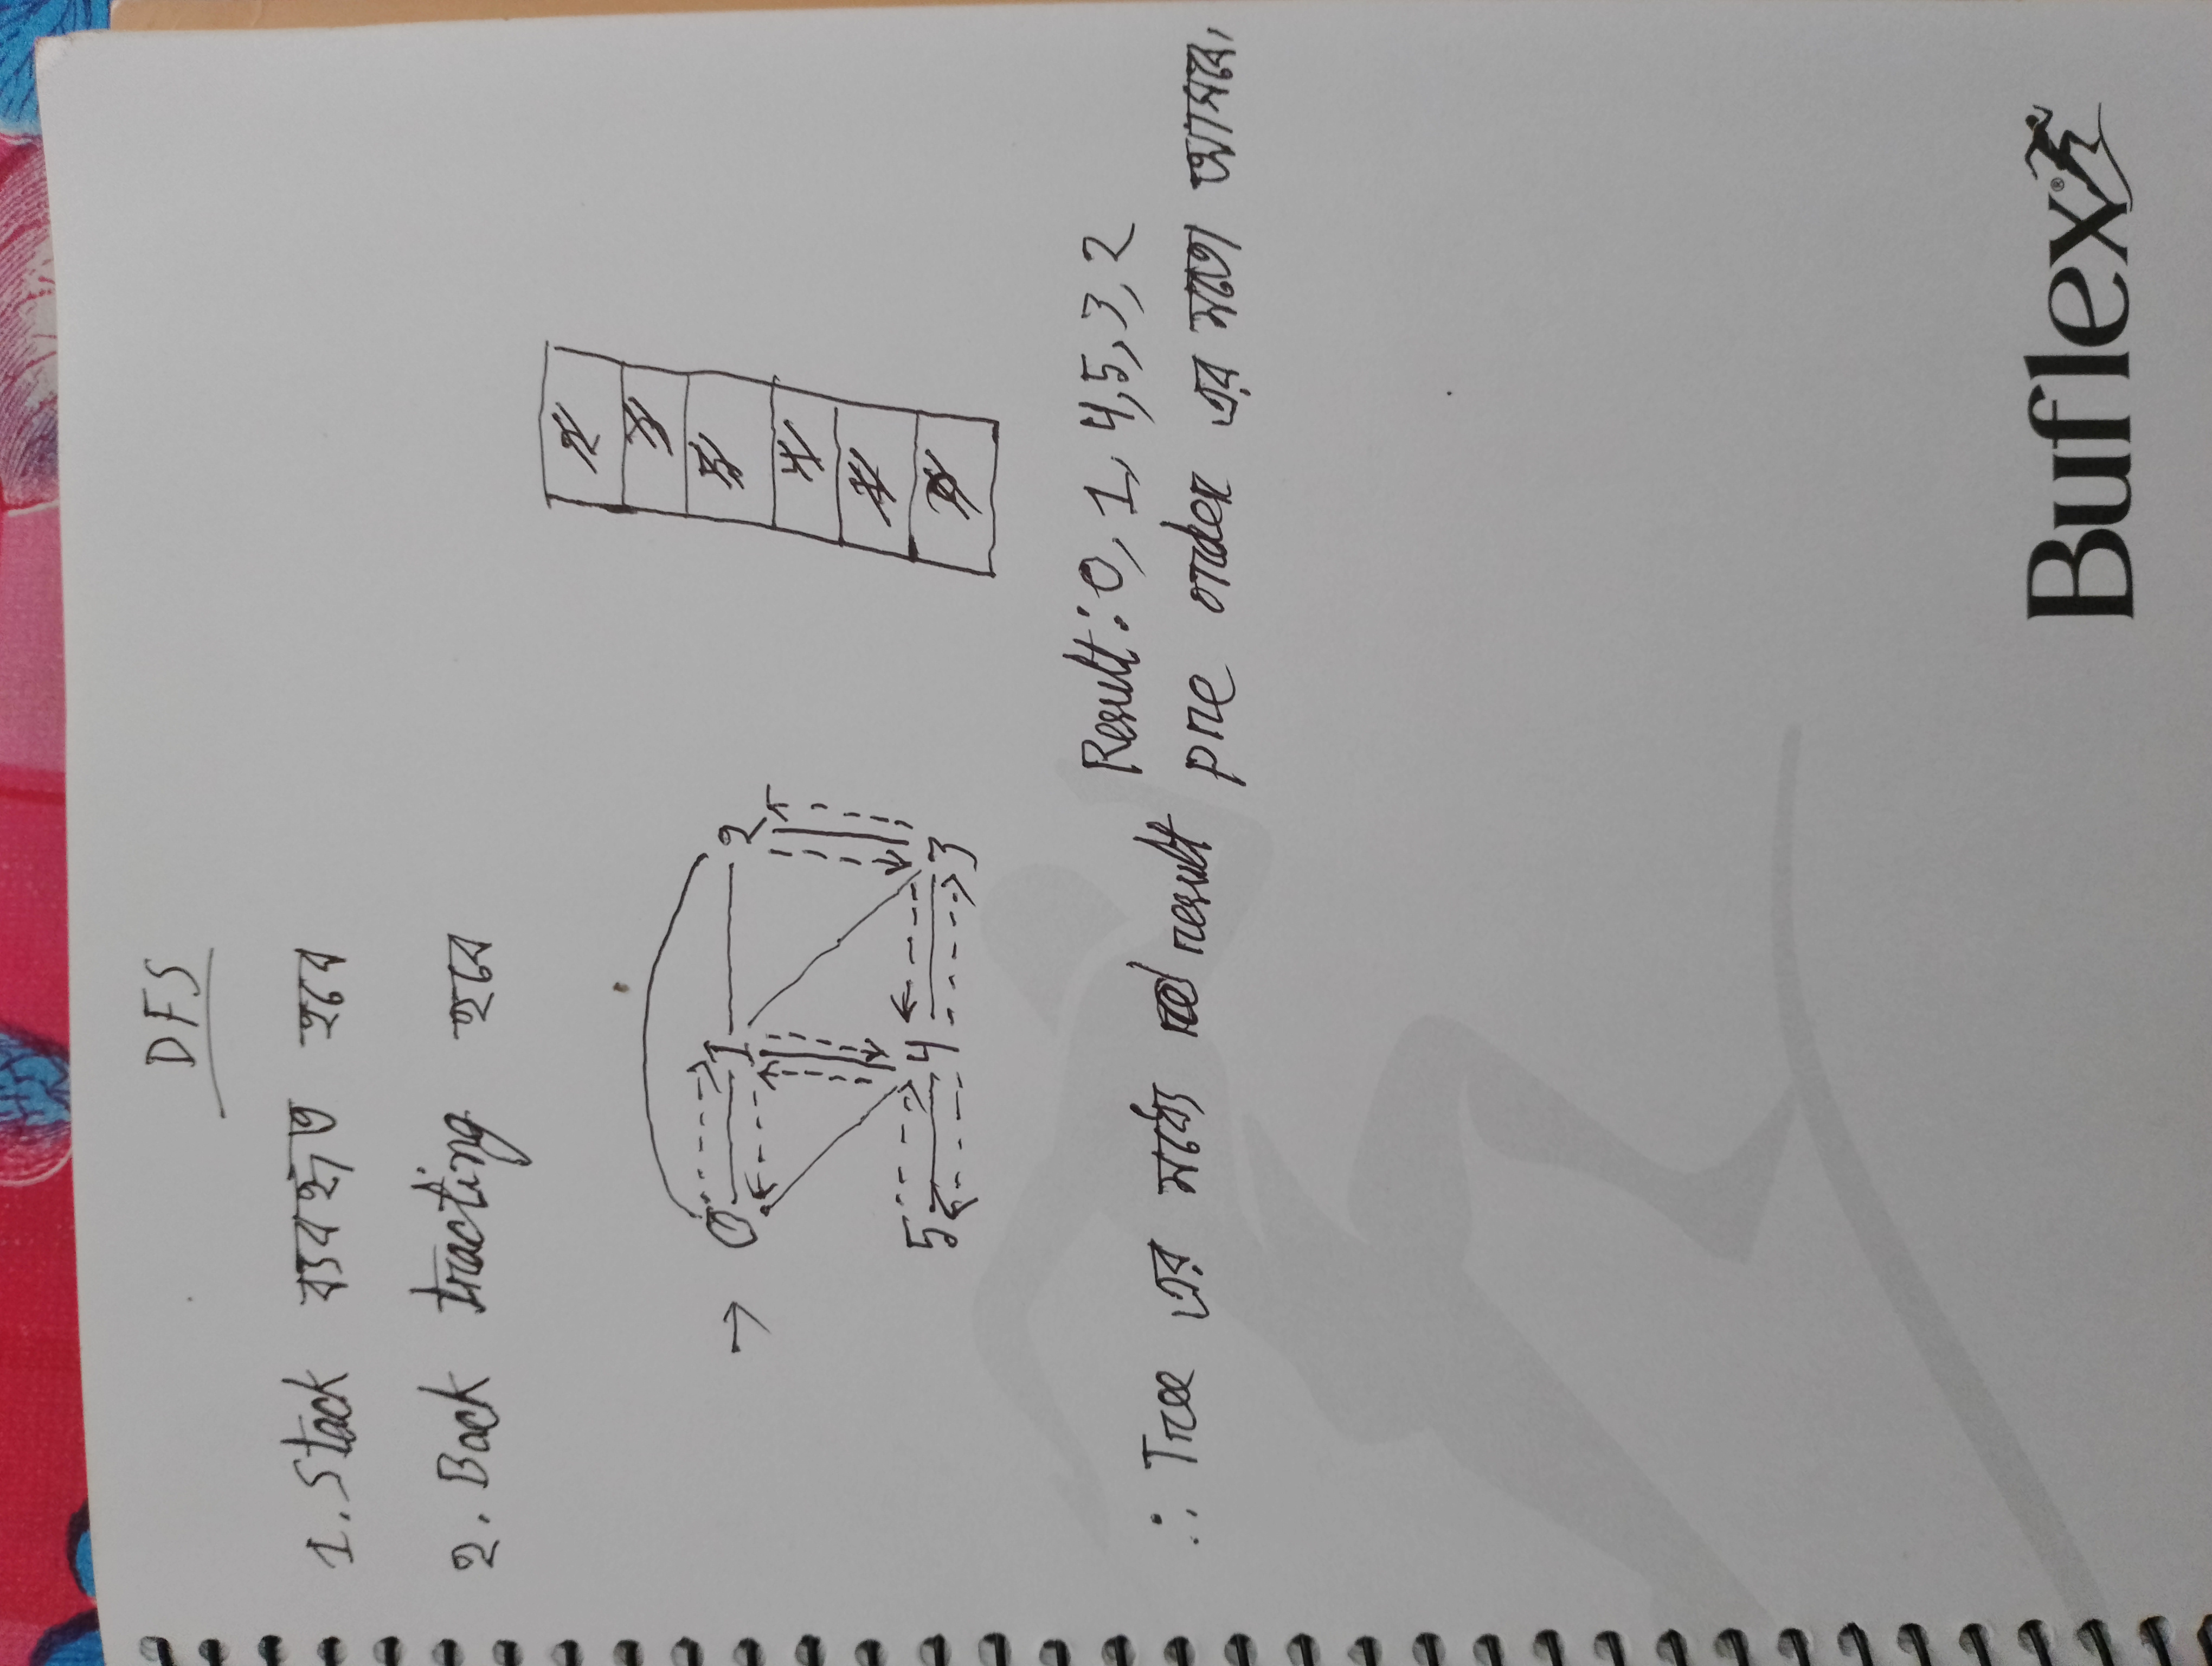 DFS
1. Stack ব্যবহৃত হবে
2. Back tracting হবে
0 1 2
5 4 3
2
3
5
4
1
0
Result: 0, 1, 4, 5, 3, 2
∴ Tree এর মধ্যে result pre order এর মতো আসবে।
Buflex®